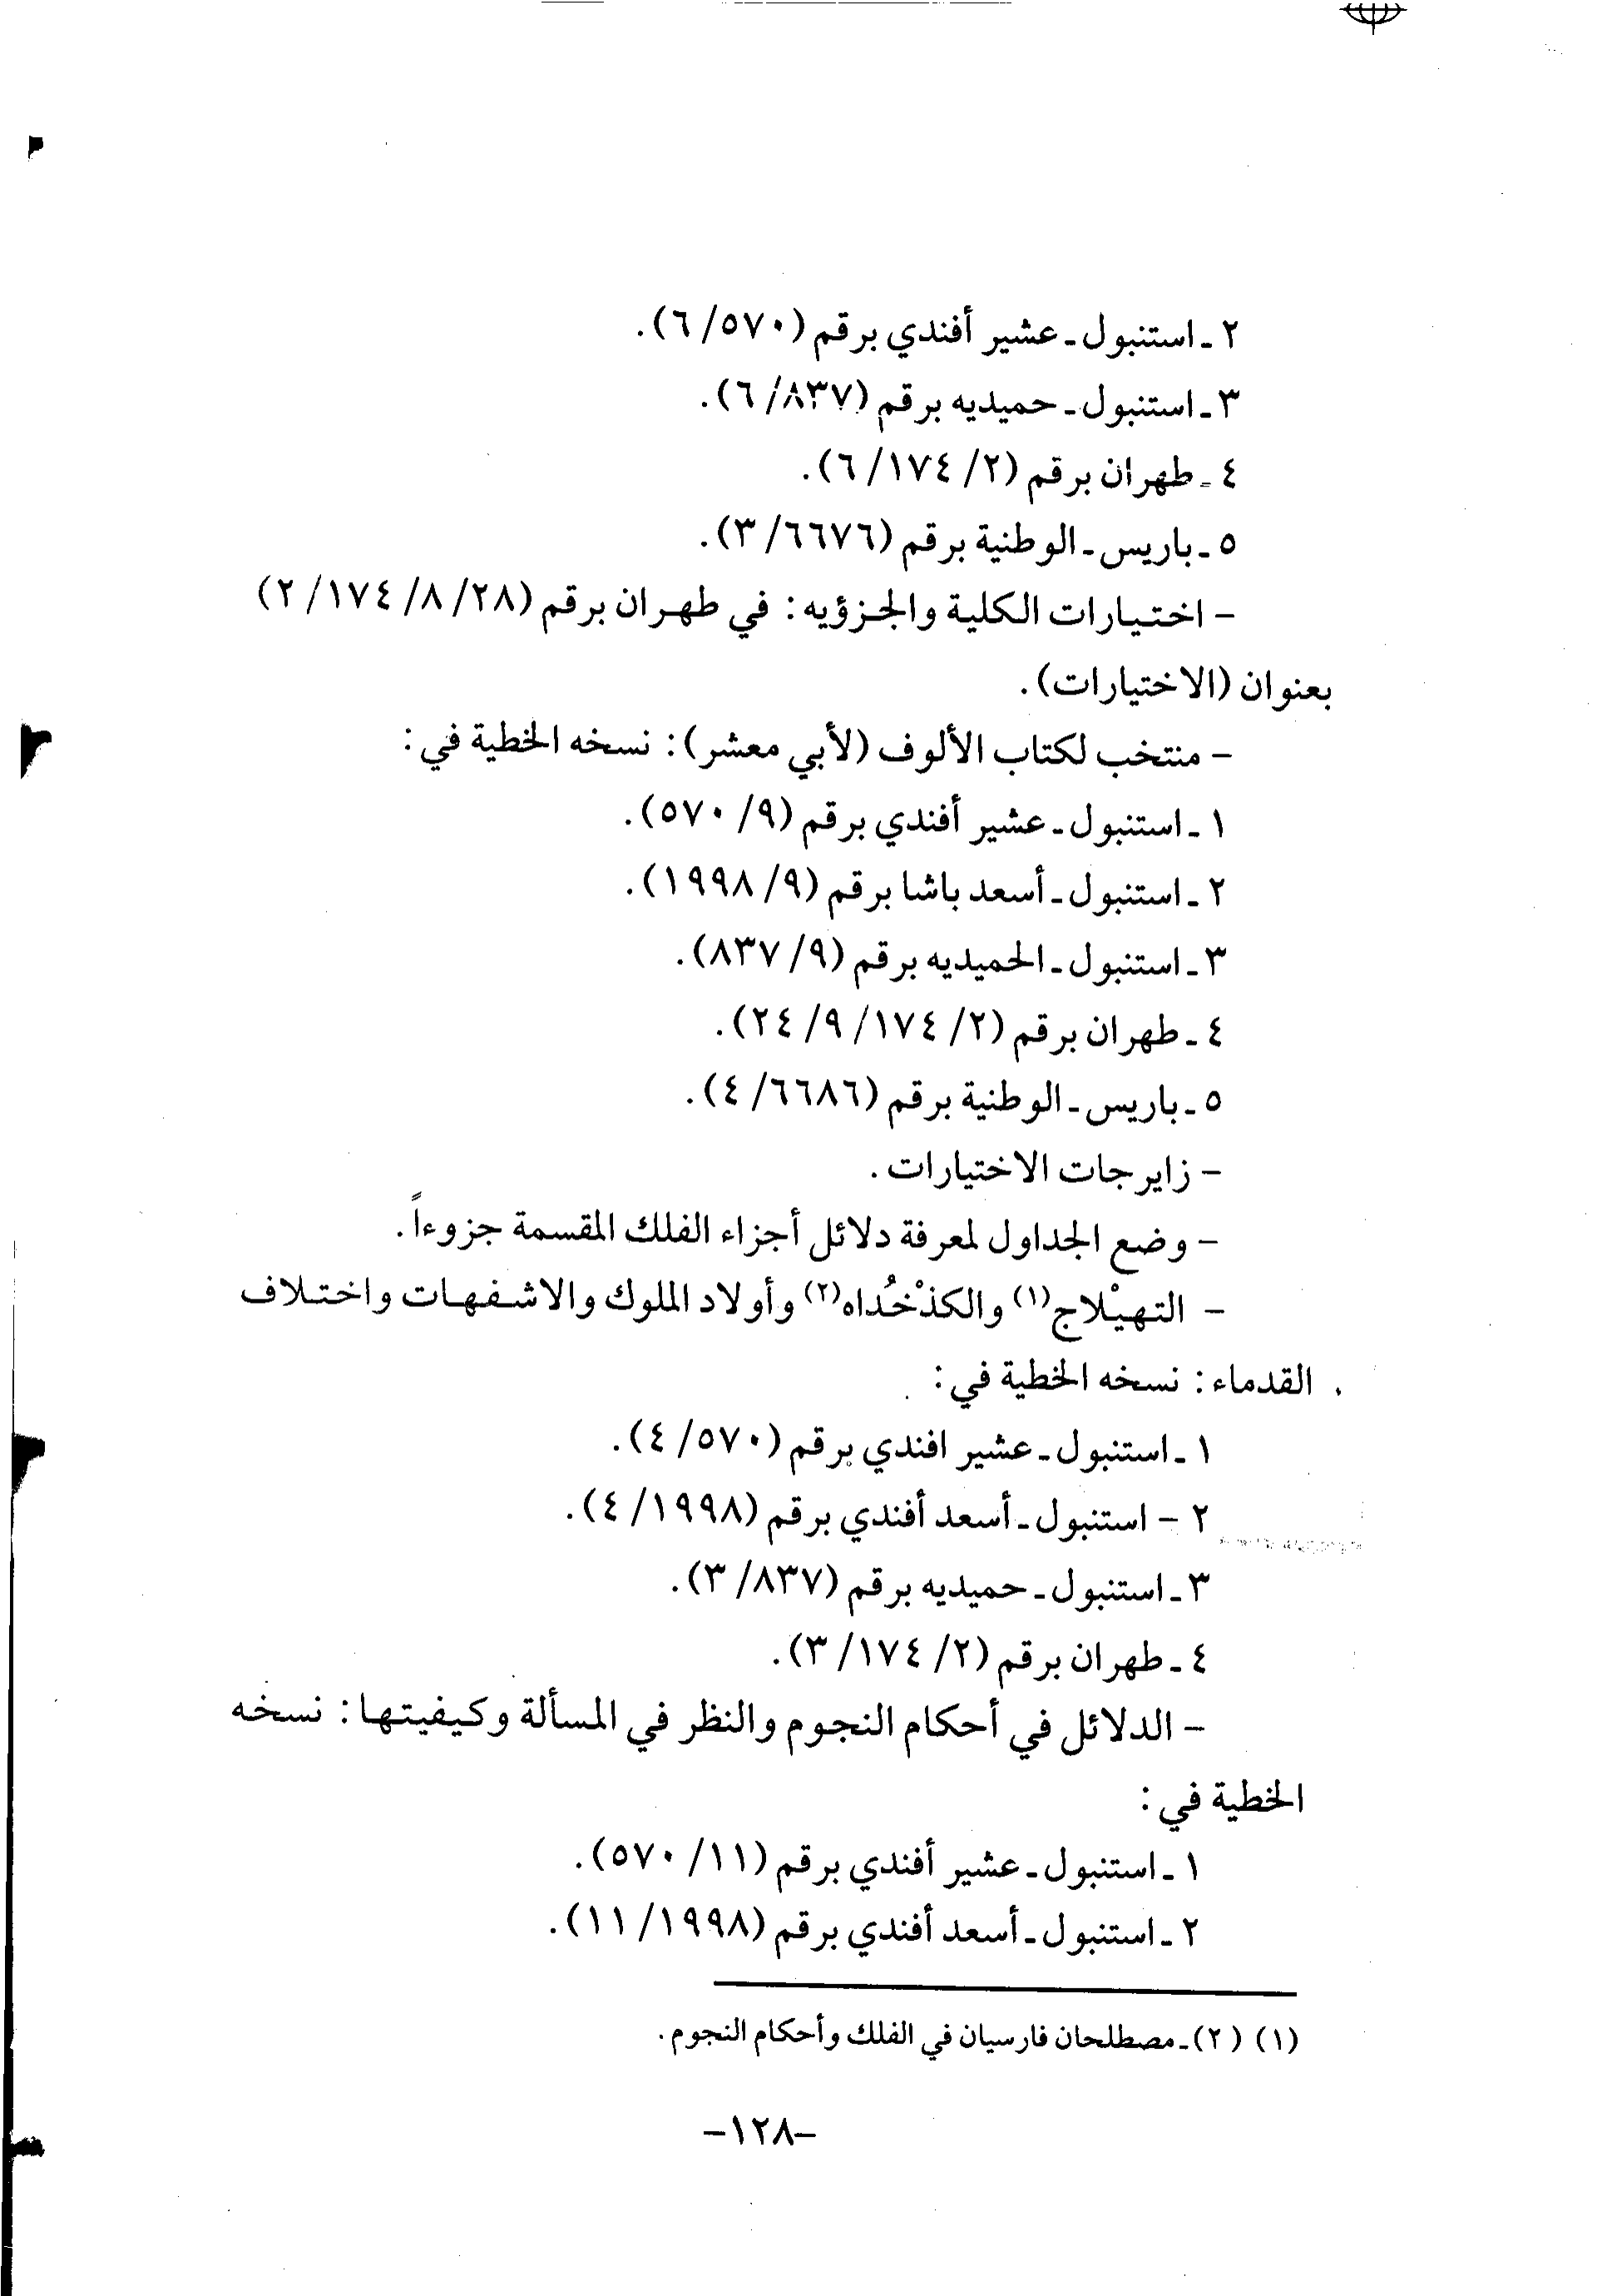 ٢ ـ استنبول ـ عشير أفندي برقم (٥٧٠/ ٦).
٣ ـ استنبول ـ حميديه برقم (٨٣٧/ ٦).
٤ ـ طهران برقم (٢/ ١٧٤/ ٦).
٥ ـ باريس ـ الوطنية برقم (٦٦٧٦/ ٣).
– اختيارات الكلية والجزؤيه: في طهران برقم (٢٨/ ٨/ ١٧٤/ ٢)
بعنوان (الاختيارات).
– منتخب لكتاب الألوف (لأبي معشر): نسخه الخطية في:
١ ـ استنبول ـ عشير أفندي برقم (٩/ ٥٧٠).
٢ ـ استنبول ـ أسعد باشا برقم (٩/ ١٩٩٨).
٣ ـ استنبول ـ الحميديه برقم (٩/ ٨٣٧).
٤ ـ طهران برقم (٢/ ١٧٤/ ٩/ ٢٤).
٥ ـ باريس ـ الوطنية برقم (٦٦٨٦/ ٤).
– زايرجات الاختيارات.
– وضع الجداول لمعرفة دلائل أجزاء الفلك المقسمة جزوءاً.
– التهيْلاج(١) والكذْخُداه(٢) وأولاد الملوك والاشفهات واختلاف
القدماء: نسخه الخطية في:
١ ـ استنبول ـ عشير افندي برقم (٥٧٠/ ٤).
٢ – استنبول ـ أسعد أفندي برقم (١٩٩٨/ ٤).
٣ ـ استنبول ـ حميديه برقم (٨٣٧/ ٣).
٤ ـ طهران برقم (٢/ ١٧٤/ ٣).
– الدلائل في أحكام النجوم والنظر في المسألة وكيفيتها: نسخه
الخطية في:
١ ـ استنبول ـ عشير أفندي برقم (١١/ ٥٧٠).
٢ ـ استنبول ـ أسعد أفندي برقم (١٩٩٨/ ١١).
(١) (٢) ـ مصطلحان فارسيان في الفلك وأحكام النجوم.
–١٢٨–